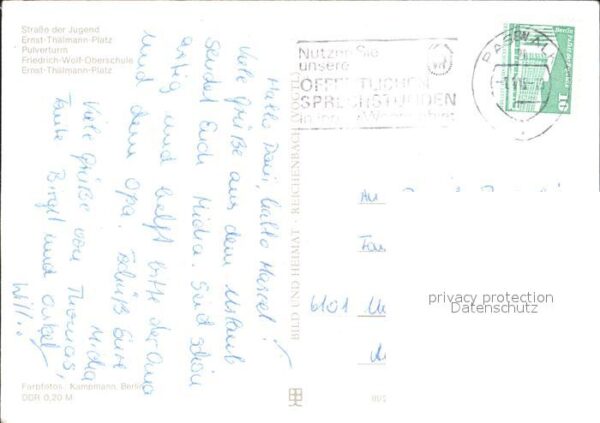 Straße der Jugend
Ernst-Thälmann-Platz
Pulverturm
Friedrich-Wolf-Oberschule
Ernst-Thälmann-Platz
Hallo Dani, hallo Marcel!
Viele Grüße aus dem Urlaub
sendet Euch Micha. Seid schön
artig und helft bitte der Oma
und dem Opa. Tschüß Eure
Micha
Viele Grüße von Thomas,
Tante Birgit und Onkel
Willi
Farbfotos: Kampmann, Berlin
DDR 0,20 M
BILD UND HEIMAT · REICHENBACH (VOGTL)
Nutzen Sie
unsere
ÖFFENTLICHEN
SPRECHSTUNDEN
in Ihrem Wohngebiet
PASEWALK
10
An
Fam
6101
privacy protection
Datenschutz